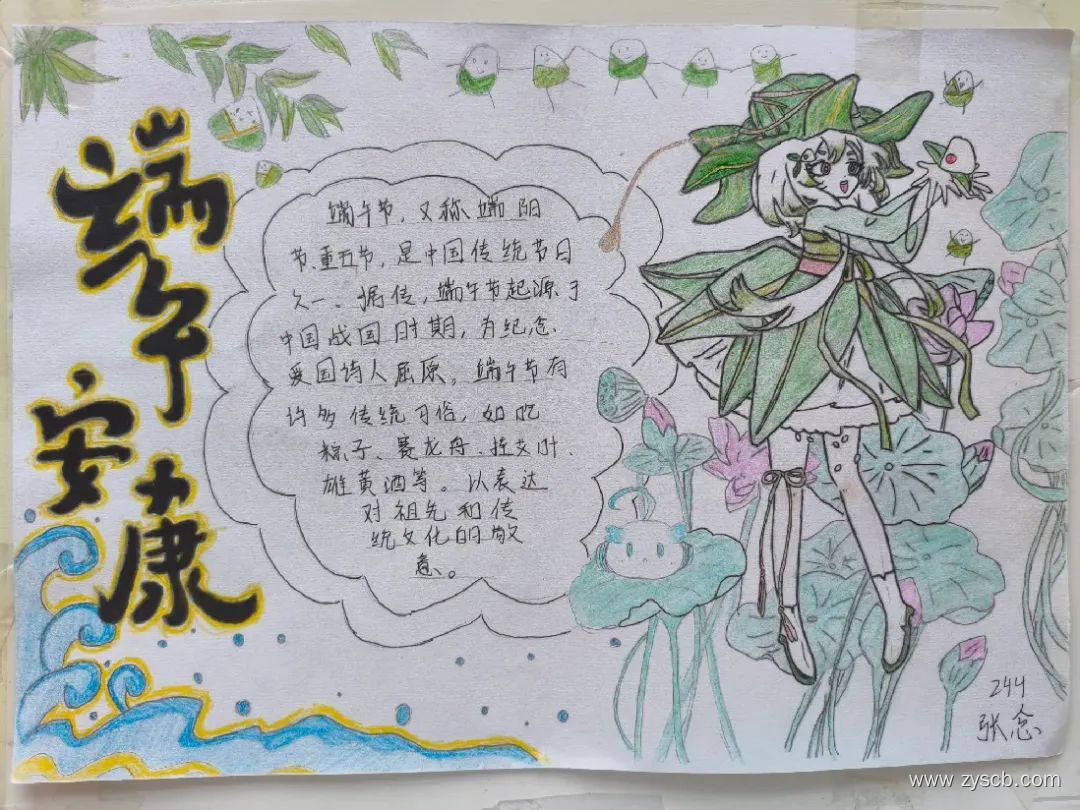 端午安康
端午节，又称端阳
节、重五节，是中国传统节日
之一、据传，端午节起源于
中国战国时期，为纪念
爱国诗人屈原。端午节有
许多传统习俗，如吃
粽子、赛龙舟、挂艾叶、
雄黄酒等。以表达
对祖先和传
统文化的敬
意。
244
张念
www.zyscb.com